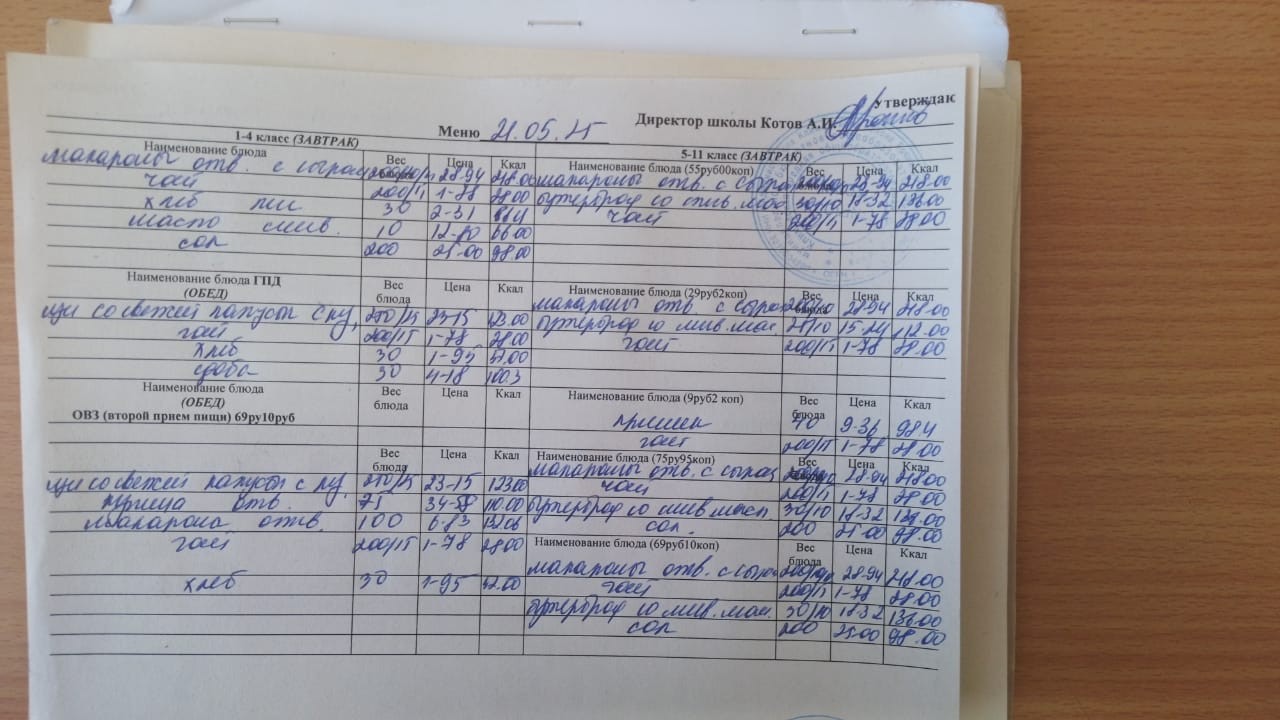 Утверждаю
Директор школы Котов А.И.
Меню 21.05.25
1-4 класс (ЗАВТРАК)
Наименование блюда Вес блюда Цена Ккал
макароны отв. с сыром 28-94 218.00
чай 200/15 1-78 28.00
хлеб пш. 30 2-31
масло слив. 10 66.00
сок 200 25-00 98.00
Наименование блюда ГПД (ОБЕД) Вес блюда Цена Ккал
щи со свежей капусты с ку. 250/25 23-15 123.00
чай 200/15 1-78 28.00
хлеб 30 1-95 52.00
сдоба 30 4-18 100.3
Наименование блюда (ОБЕД) Вес блюда Цена Ккал
ОВЗ (второй прием пищи) 69ру10руб
Вес блюда Цена Ккал
щи со свежей капусты с ку. 250/25 23-15 123.00
курица отв. 75 110.00
макароны отв. 100 6-83
чай 200/15 1-78 28.00
хлеб 30 1-95 52.00
5-11 класс (ЗАВТРАК)
Наименование блюда (55руб00коп) Вес блюда Цена Ккал
макароны отв. с сыром 28-94 218.00
бутерброд со слив. мас 30/10 18-32 136.00
чай 200/15 1-78 28.00
Наименование блюда (29руб2коп) Вес блюда Цена Ккал
макароны отв. с сыром 28-94 218.00
бутерброд со слив. мас. 15-24 112.00
чай 200/15 1-78 28.00
Наименование блюда (9руб2 коп) Вес блюда Цена Ккал
70 9-36 98.4
чай 200/15 1-78 28.00
Наименование блюда (75ру95коп) Вес блюда Цена Ккал
макароны отв. с сыром 28-94 218.00
чай 200/15 1-78 28.00
бутерброд со слив. масл. 30/10 18-32 136.00
сок. 200 25-00 98.00
Наименование блюда (69руб10коп) Вес блюда Цена Ккал
макароны отв. с сыром 28-94 218.00
чай 200/15 1-78 28.00
бутерброд со слив. мас. 30/10 18-32 136.00
сок 200 25.00 98.00